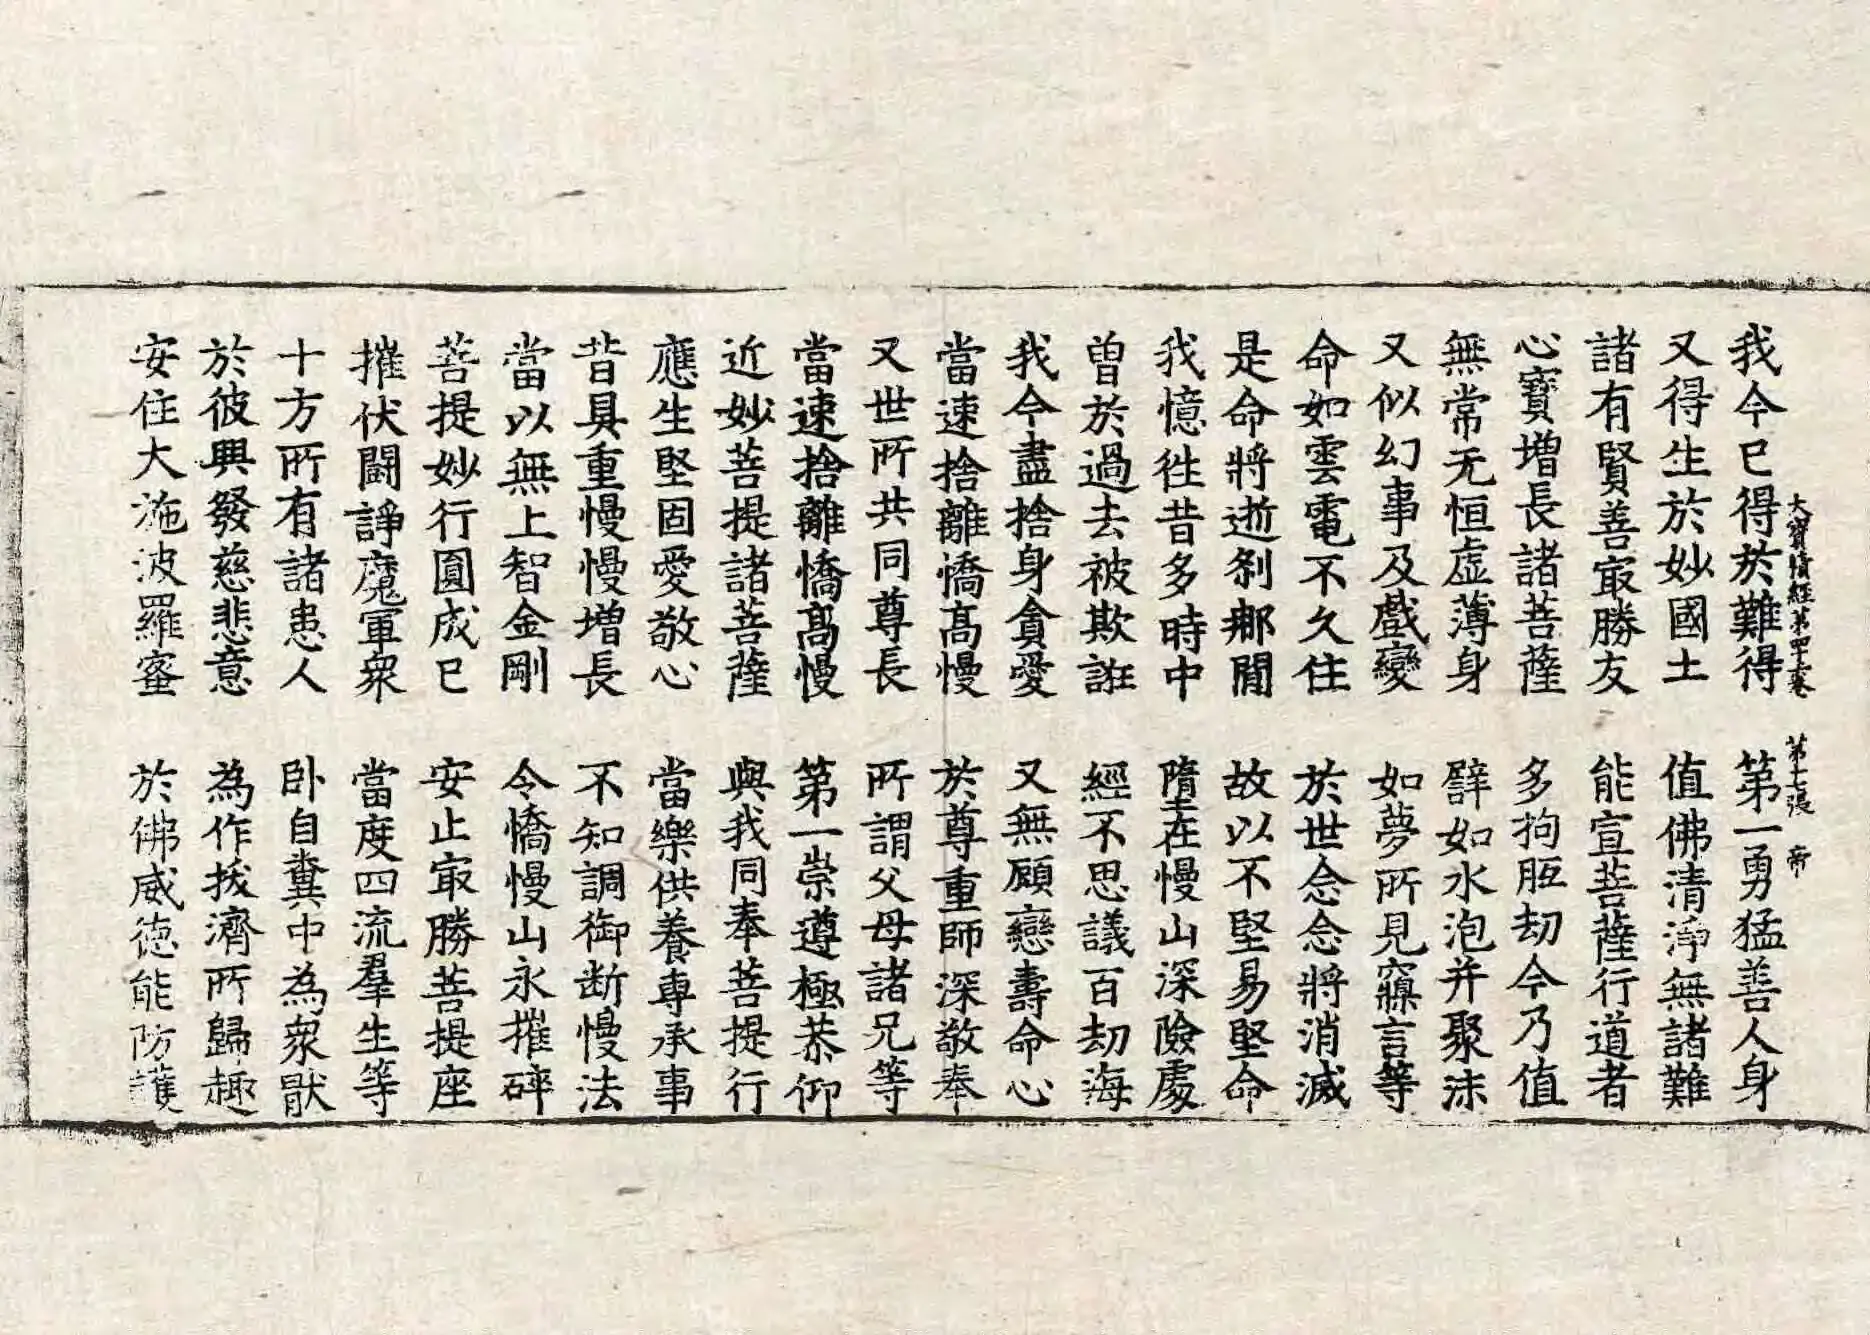 我今已得於難得　第一勇猛善人身
大寶積經第四十一卷　第十七張　帝
又得生於妙國土　值佛清淨無諸難
諸有賢善㝡勝友　能宣菩薩行道者
心寶增長諸菩薩　多拘胝劫今乃值
無常无恒虛薄身　譬如水泡并聚沫
又似幻事及戲變　如夢所見寱言等
命如雲電不久住　於世念念將消滅
是命將逝剎那閒　故以不堅易堅命
我憶徃昔多時中　墮在慢山深險處
曾於過去被欺誑　經不思議百劫海
我今盡捨身貪愛　又無顧戀壽命心
當速捨離憍高慢　於尊重師深敬奉
又世所共同尊長　所謂父母諸兄等
當速捨離憍高慢　第一崇遵極恭仰
近妙菩提諸菩薩　與我同奉菩提行
應生堅固愛敬心　當樂供養專承事
昔具重慢慢增長　不知調御断慢法
當以無上智金剛　令憍慢山永摧碎
菩提妙行圓成已　安止㝡勝菩提座
摧伏鬪諍魔軍衆　當度四流羣生等
十方所有諸患人　卧自糞中為衆猒
於彼興發慈悲意　為作拔濟所歸趣
安住大施波羅蜜　於佛威徳能防護